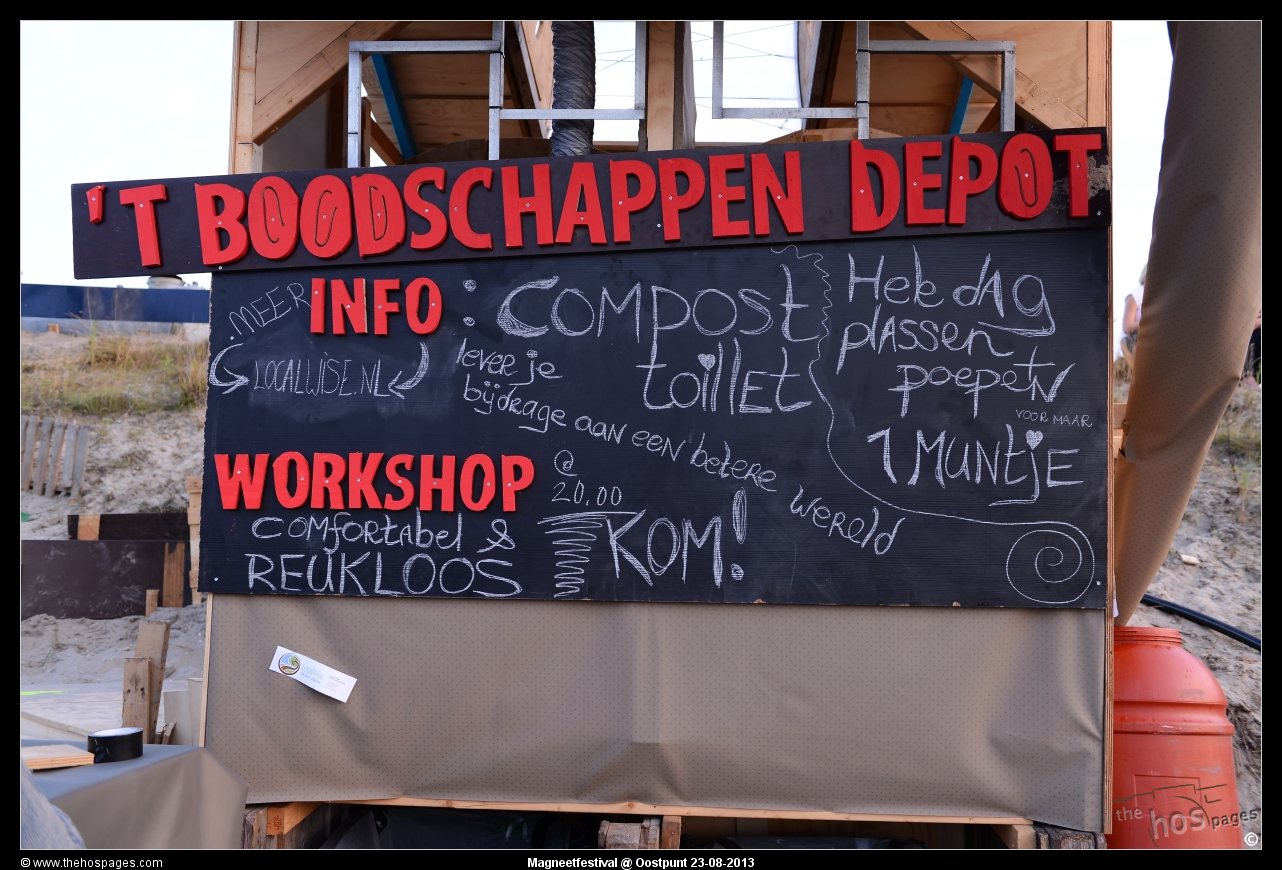 'T BOODSCHAPPEN DEPOT
MEER INFO :
LOCALWISE.NL
COMPOST
toillet
lever je
bijdrage aan een betere wereld
Hele dag
plassen
poepen
VOOR MAAR
1 Muntje
WORKSHOP
@
20.00
COMfortabel &
REUKLOOS
KOM!
the hos pages
©
© www.thehospages.com
Magneetfestival @ Oostpunt 23-08-2013